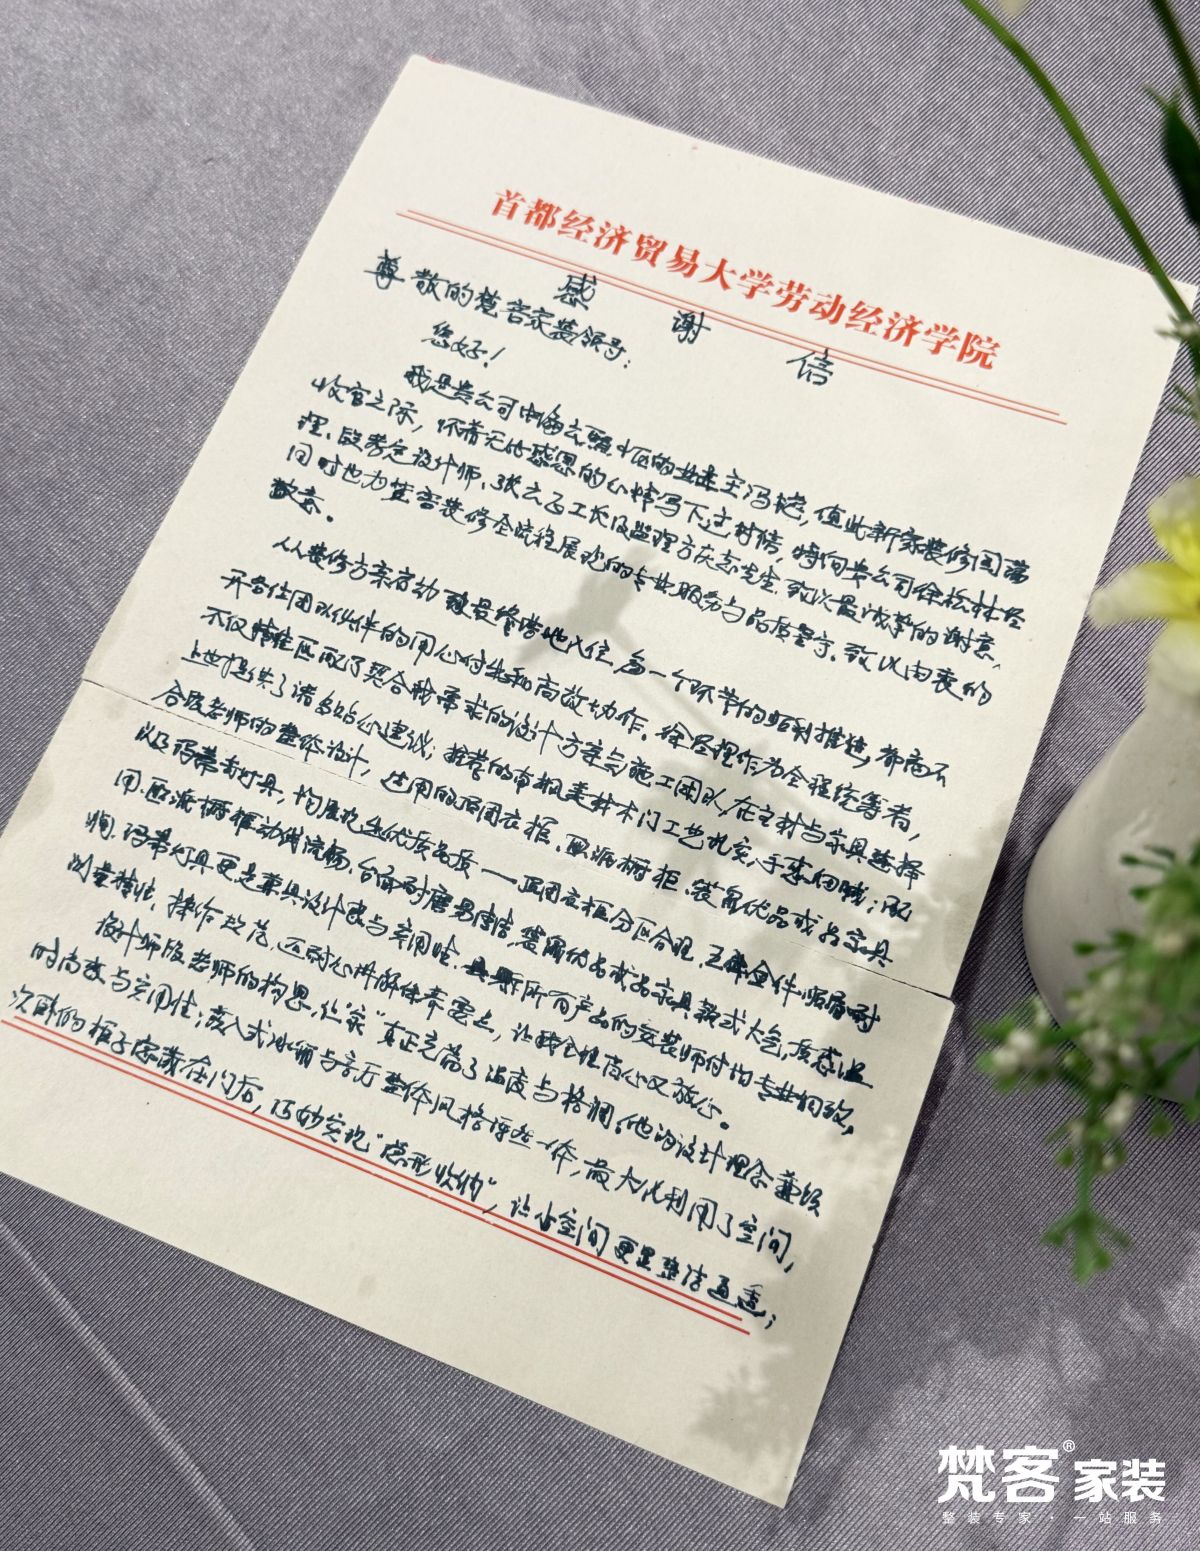 首都经济贸易大学劳动经济学院
感谢信
尊敬的梵客家装领导：
您好！
我是贵公司中海云熙小区的业主冯喆，值此新家装修圆满
收官之际，怀着无比感恩的心情写下这封信，特向贵公司徐松林经
理、段老师设计师、张云正工长及监理方庆志先生，致以最诚挚的谢意，
同时也为梵客装修全流程展现的专业服务与品质坚守，致以由衷的
敬意。
从装修方案启动到最终落地入住，每一个环节的顺利推进，都离不
开各位团队伙伴的用心付出和高效协作。徐经理作为全程统筹者，
不仅精准匹配了契合我需求的设计方案与施工团队，在主材与家具选择
上也提供了诸多贴心建议；推荐的南枫美林木门工艺扎实，手感细腻；配
合段老师的整体设计，选用的 衣柜、欧派橱柜、装 优品成品家具
以及 灯具，均展现出优质品质—— 衣柜分区合理，五金全件顺滑耐
用，欧派橱柜推动线流畅，台面耐磨易清洁，装 优品成品家具款式大气，质感温
润， 灯具更是兼具设计感与实用性。 所有产品的安装师傅均专业细致，
测量精准，操作规范，还耐心讲解保养要点，让我全程省心又放心。
设计师段老师的构思，让家“真正充满了温度与格调。他的设计理念兼顾
时尚感与实用性；嵌入式冰箱与客厅整体风格浑然一体，最大化利用了空间，
次卧的柜子隐藏在门后，巧妙实现“隐形收纳”，让小空间更显整洁通透；
梵客®家装
整装专家·一站服务